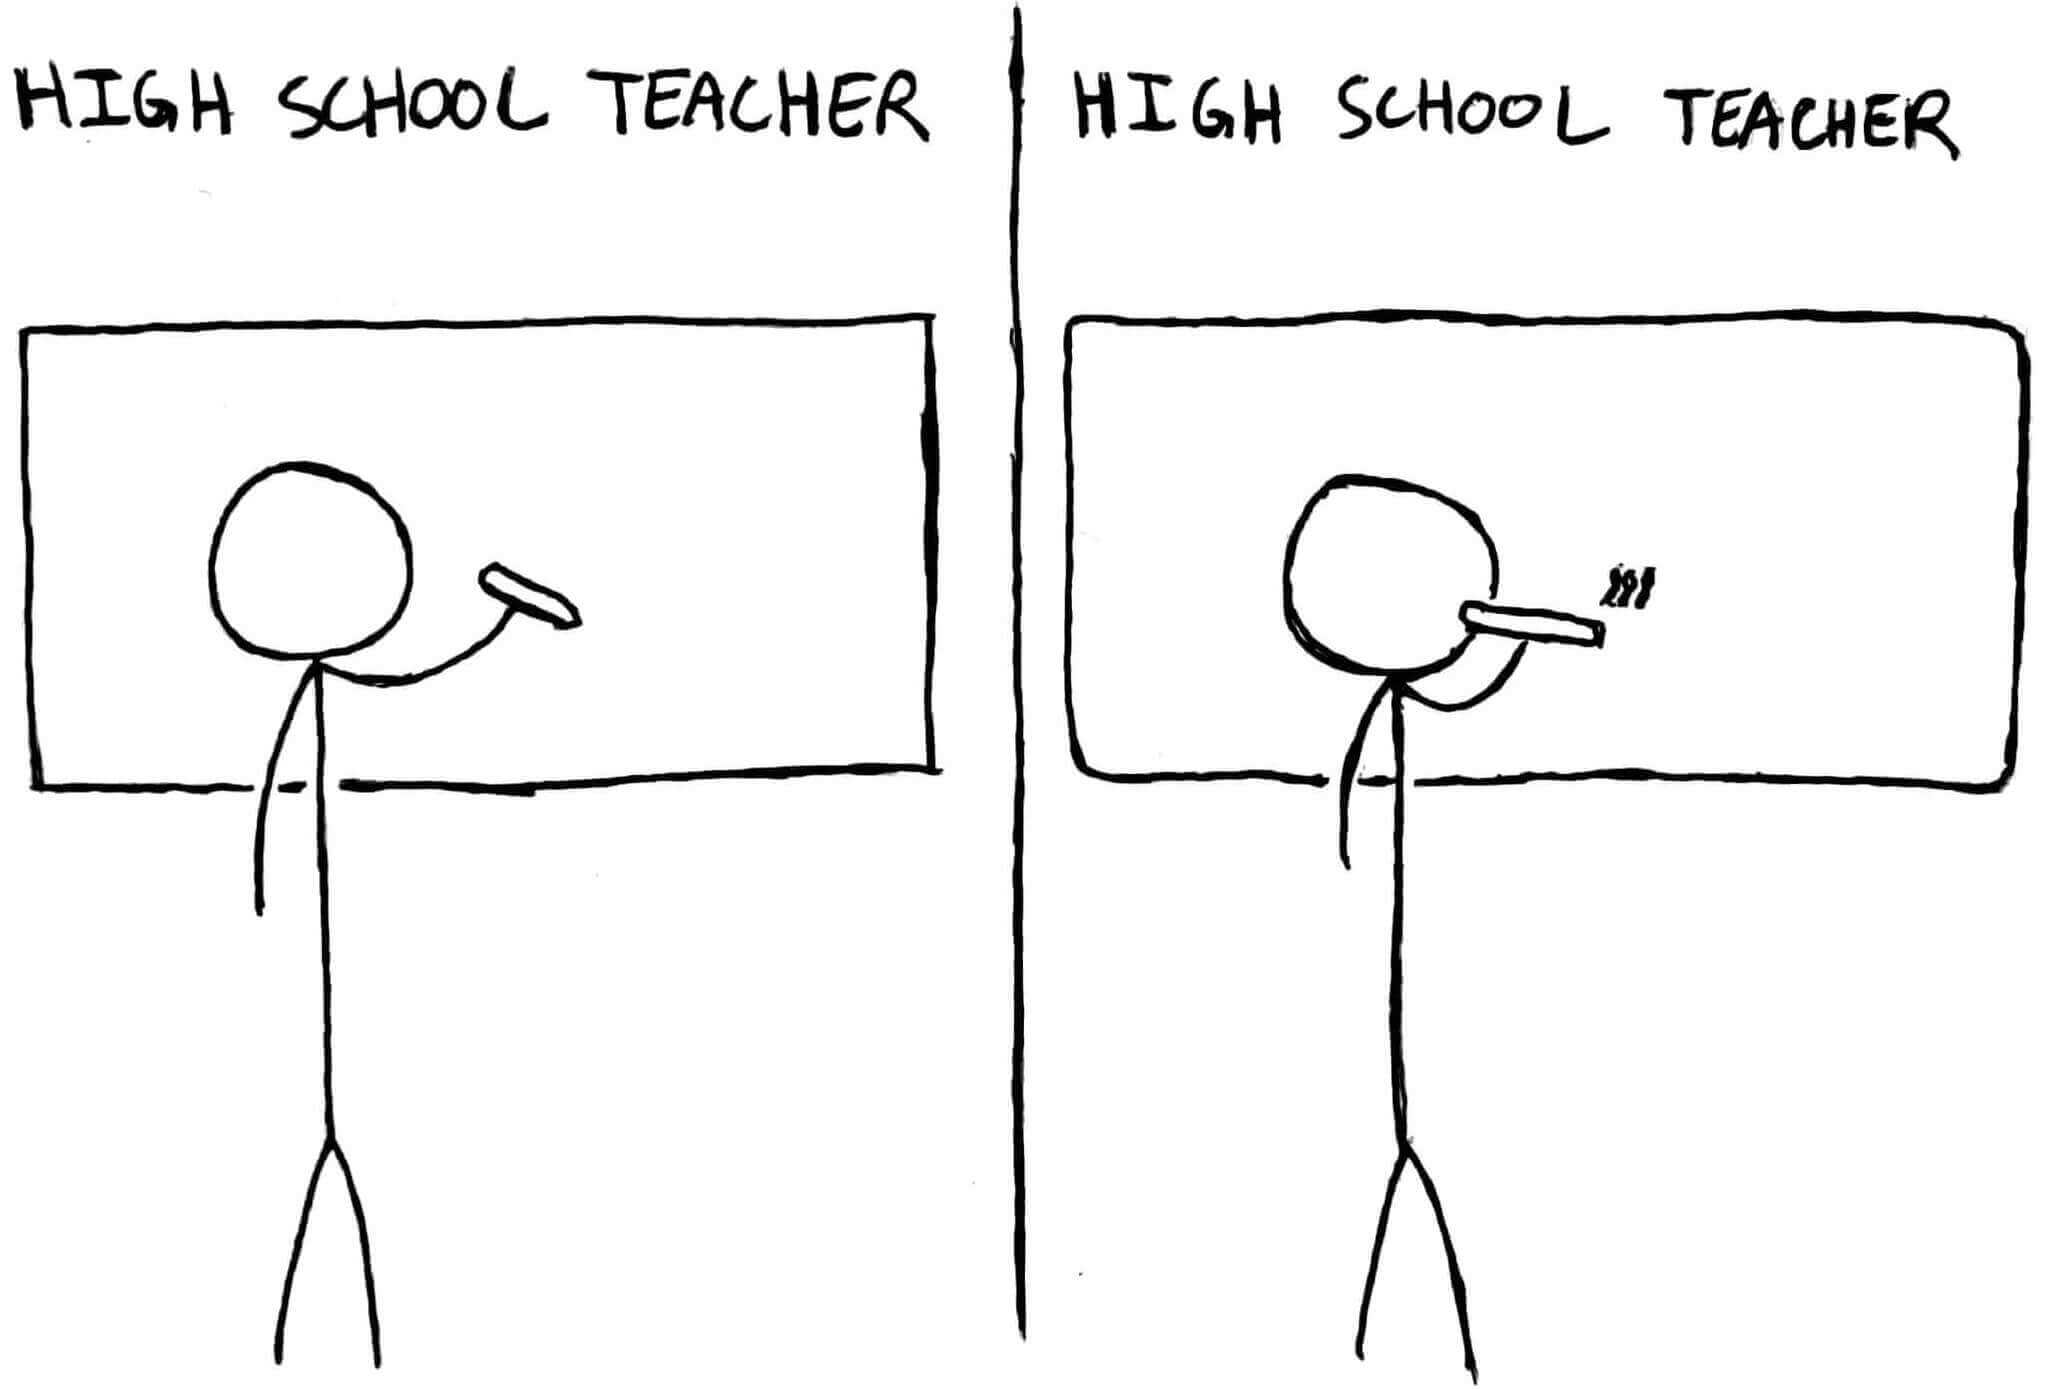 HIGH SCHOOL TEACHER
HIGH SCHOOL TEACHER